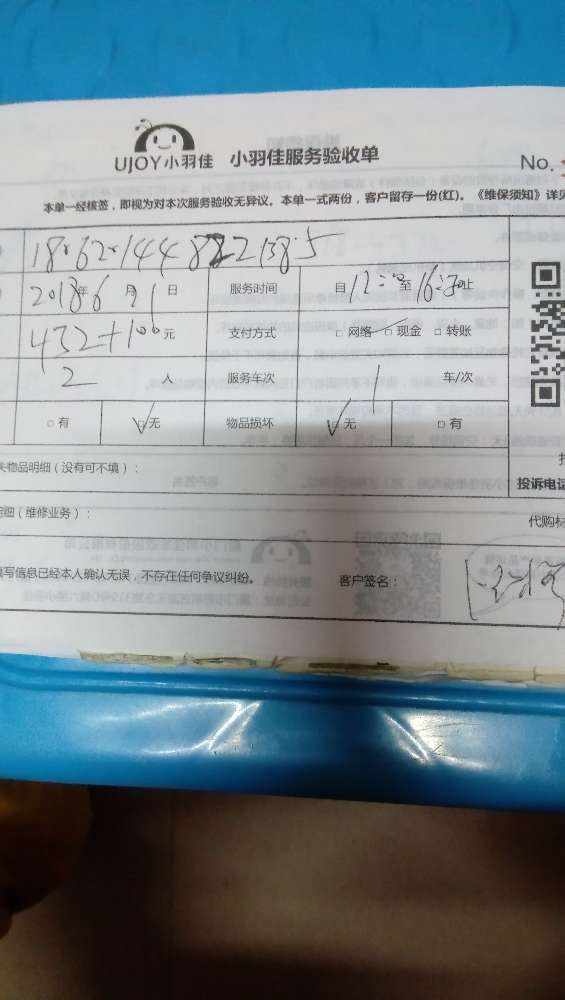 UJOY小羽佳 小羽佳服务验收单
No.
本单一经核签，即视为对本次服务验收无异议。本单一式两份，客户留存一份(红)。《维保须知》详见
2018年6月21日 服务时间 自12:00至16:30止
432+100元 支付方式 □网络 □现金 □转账
2人 服务车次 1 车/次
□有 □无 物品损坏 □无 □有
物品明细（没有可不填）：
投诉电话
明细（维修业务）：
代购材
填写信息已经本人确认无误，不存在任何争议纠纷。 客户签名：